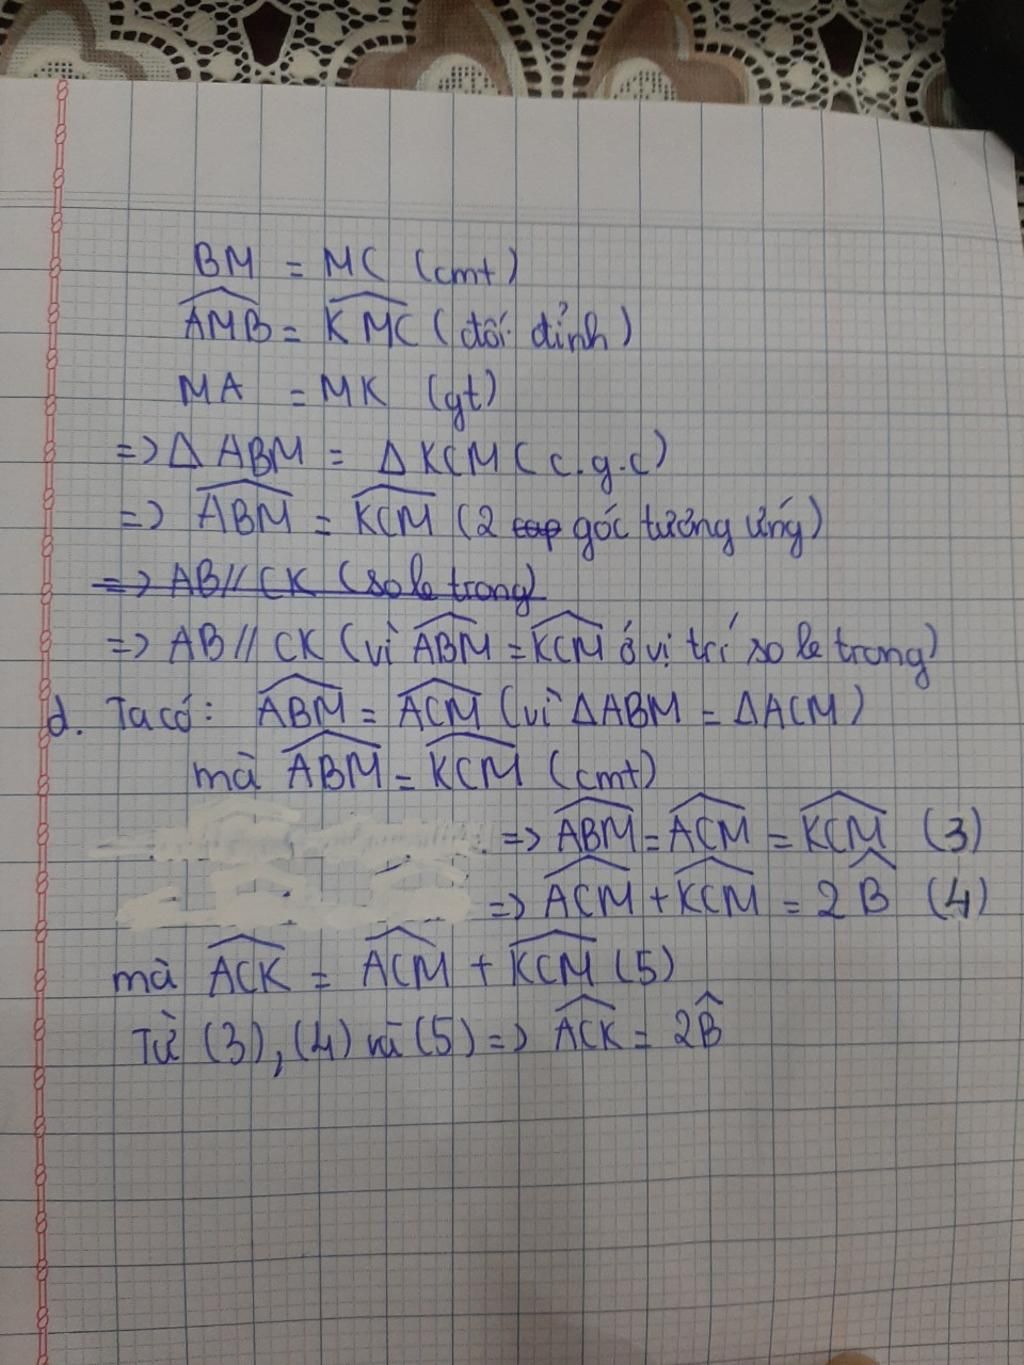 BM = MC (cmt)
\widehat{AMB} = \widehat{KMC} (đối đỉnh)
MA = MK (gt)
=> Δ ABM = Δ KCM (c.g.c)
=> \widehat{ABM} = \widehat{KCM} (2 cap góc tương ứng)
=> AB // CK (so le trong)
=> AB // CK (vì \widehat{ABM} = \widehat{KCM} ở vị trí so le trong)
d. Ta có: \widehat{ABM} = \widehat{ACM} (vì ΔABM = ΔACM)
mà \widehat{ABM} = \widehat{KCM} (cmt)
=> \widehat{ABM} = \widehat{ACM} = \widehat{KCM} (3)
=> \widehat{ACM} + \widehat{KCM} = 2\widehat{B} (4)
mà \widehat{ACK} = \widehat{ACM} + \widehat{KCM} (5)
Từ (3), (4) và (5) => \widehat{ACK} = 2\widehat{B}